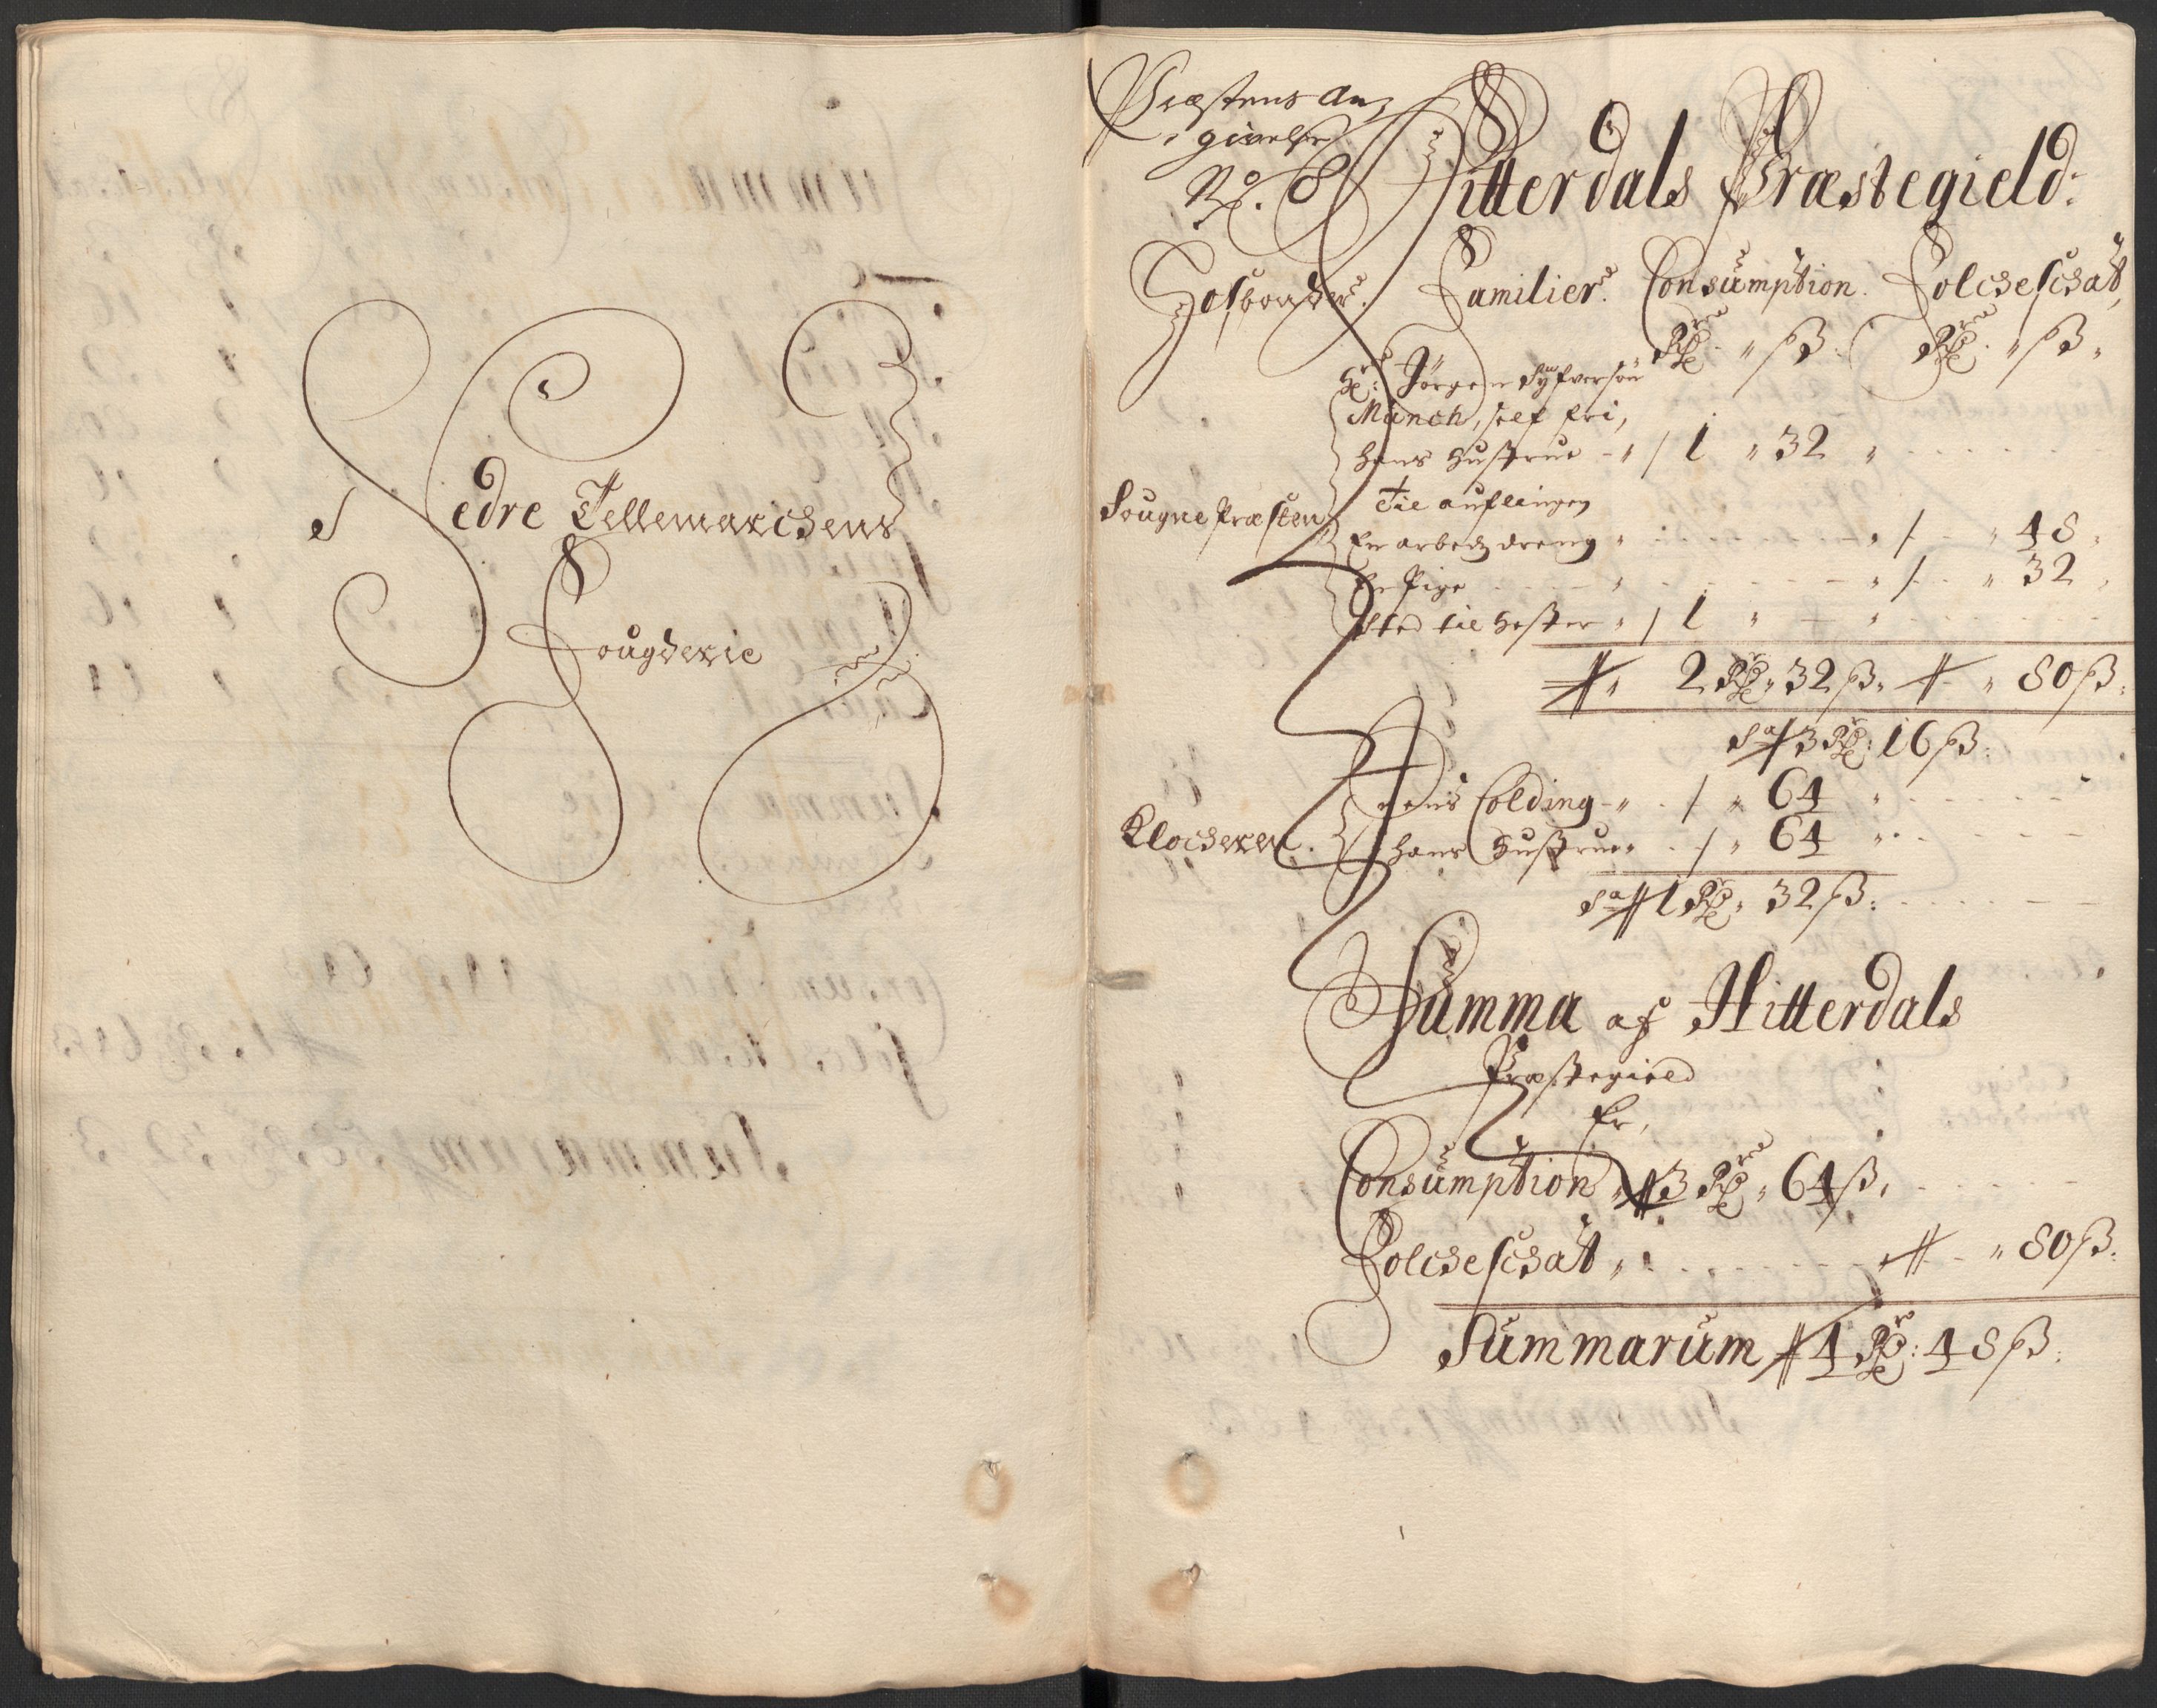 Nedre Tellemarckens
Fougderie
Præstens An-
givelse
No. 8
Hitterdals Præstegield.
Hosbonder. Familier. Consumption. Folckeschat,
Rdr. ß. Rdr. ß.
Hr: Jørgen Sÿfversøn
Munch, self fri,
hans Hustrue / 1 " 32 "
Sougne Præsten
Til auflingen
En arbeds dreng " / " 48
En Pige " / " 32
Sted til Hester " / 1 "
2 Rdr " 32 ß. " 80 ß.
Sa 3 Rdr: 16 ß.
Klockeren.
Jens Colding / " 64
Hans Hustrue / " 64
Sa 1 Rdr. 32 ß.
Summa af Hitterdals
Præstegield
Er,
Consumption 3 Rdr " 64 ß.
Folckeschat " 80 ß.
Summarum 4 Rdr: 48 ß.